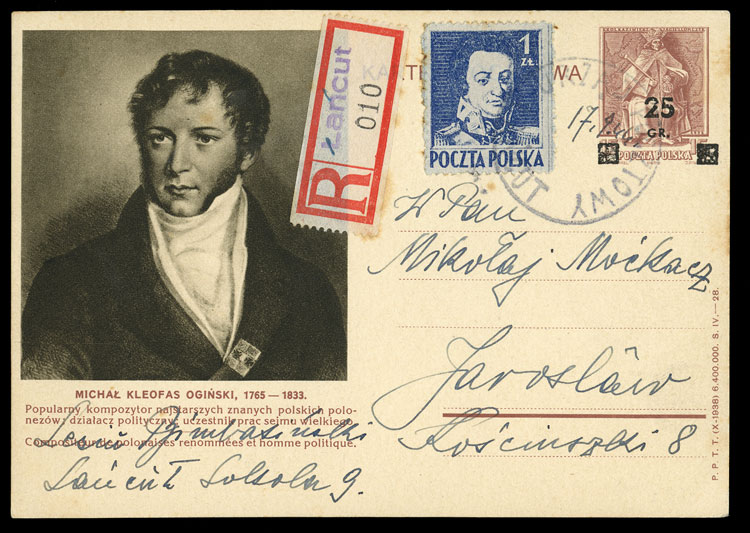 KARTE WA
R Łańcut 010
1 ZŁ.
POCZTA POLSKA
25
GR.
POCZTA POLSKA
URZĄD TOWY
17.
W Pan
Mikołaj Moćkacz
Jarosław
Kościuszki 8
MICHAŁ KLEOFAS OGIŃSKI, 1765 — 1833.
Popularny kompozytor najstarszych znanych polskich polo-
nezów; działacz polityczny, uczestnik prac sejmu wielkiego.
Compositeur de polonaises renommées et homme politique.
Łańcut Sokola 9.
P. P. T. T. (X-1938) 6.400.000. S. IV.—28.